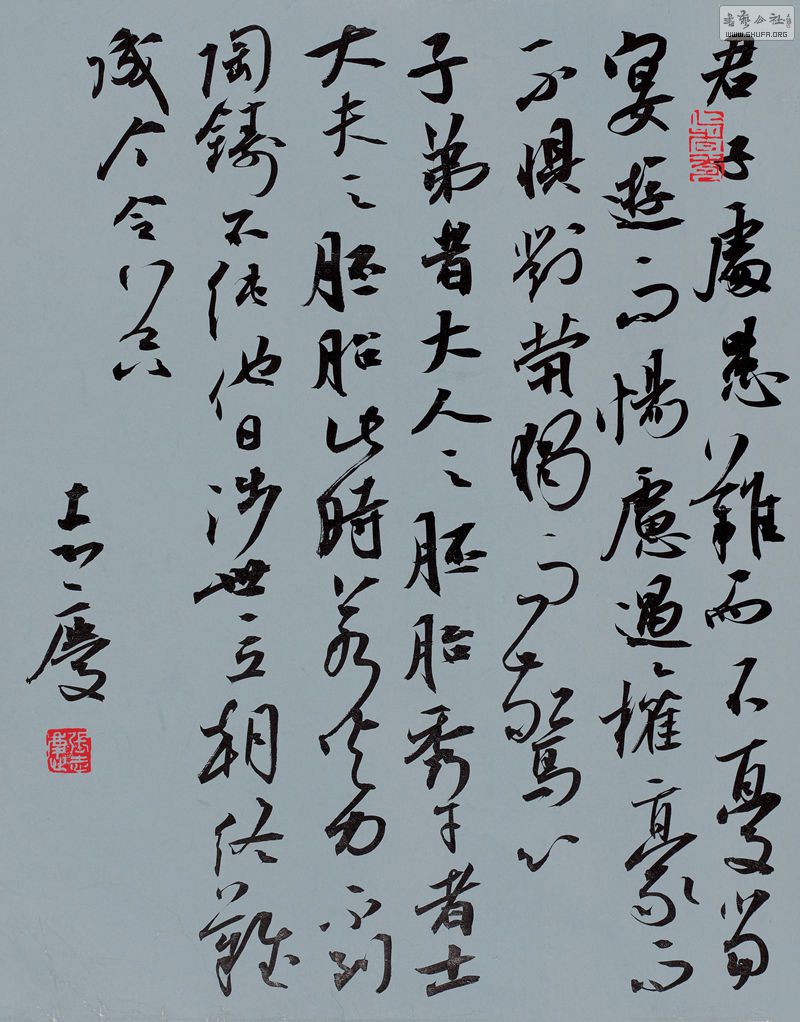 君子處患難而不憂當
宴遊而惕慮遇權豪而
不懼對惸獨而驚心
子弟者大人之胚胎秀才者士
大夫之胚胎此時若火力不到
陶鑄不純他日涉世立朝終難
成个令器
志慶
書藝公社
WWW.SHUFA.ORG